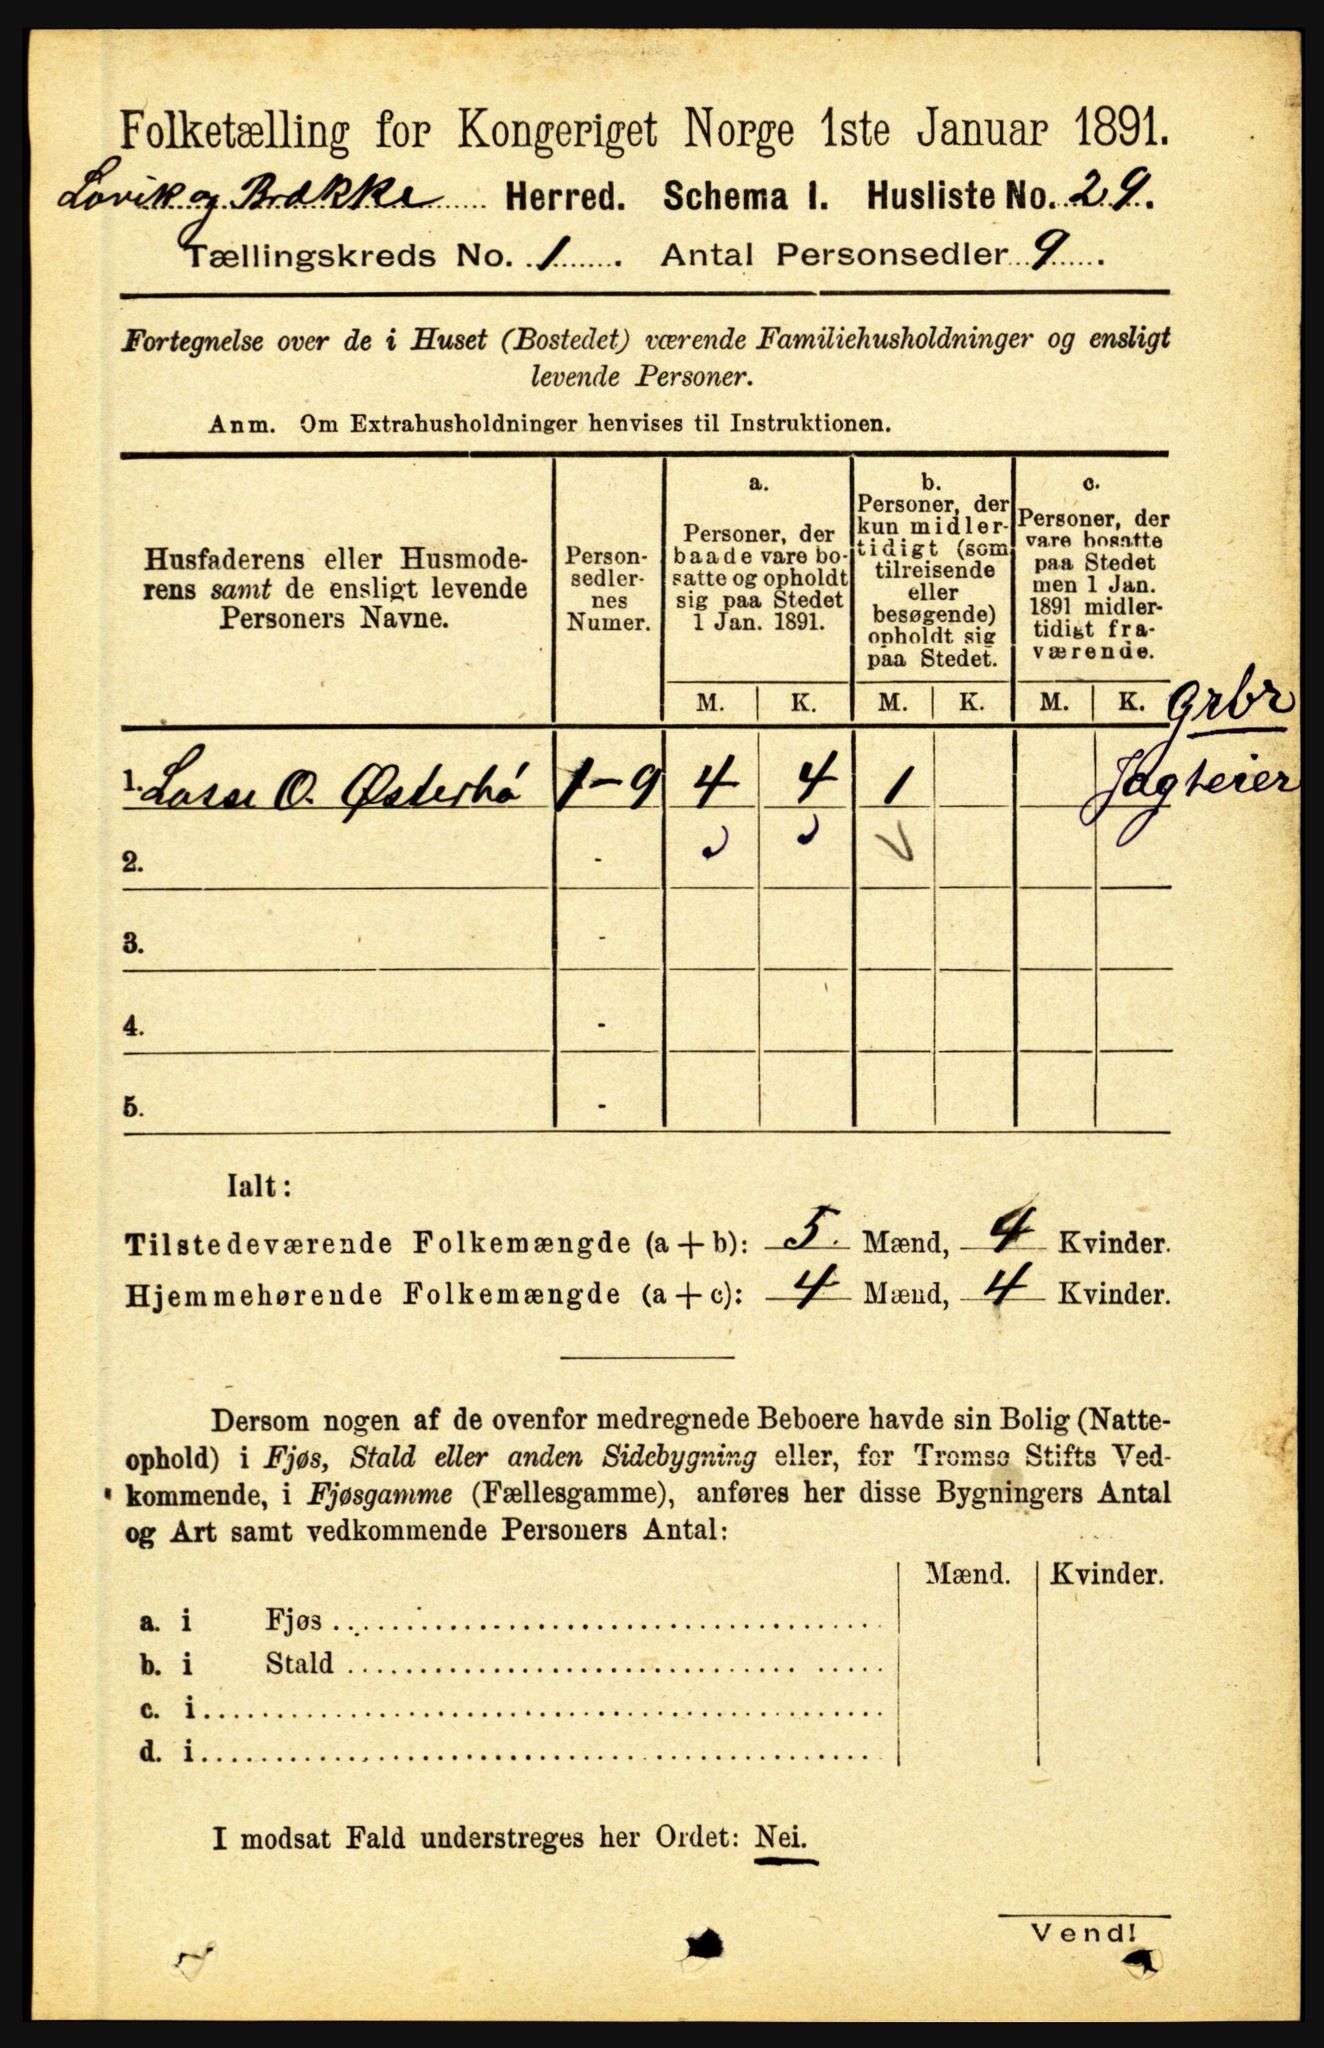 Folketælling for Kongeriget Norge 1ste Januar 1891.
Lavik og Brække Herred. Schema I. Husliste No. 29.
Tællingskreds No. 1. Antal Personsedler 9.
Fortegnelse over de i Huset (Bostedet) værende Familiehusholdninger og ensligt
levende Personer.
Anm. Om Extrahusholdninger henvises til Instruktionen.
Husfaderens eller Husmode-
rens samt de ensligt levende
Personers Navne.
Person-
sedler-
nes
Numer.
a.
Personer, der
baade vare bo-
satte og opholdt
sig paa Stedet
1 Jan. 1891.
b.
Personer, der
kun midler-
tidigt (som
tilreisende
eller
besøgende)
opholdt sig
paa Stedet.
c.
Personer, der
vare bosatte
paa Stedet
men 1 Jan.
1891 midler-
tidigt fra-
værende.
M. K. M. K. M. K. Grbr
1. Lasse O. Østerbø 1-9 4 4 1 Jagteier
2. -
3. -
4. -
5. -
Ialt:
Tilstedeværende Folkemængde (a + b): 5. Mænd, 4 Kvinder.
Hjemmehørende Folkemængde (a + c): 4 Mænd, 4 Kvinder.
Dersom nogen af de ovenfor medregnede Beboere havde sin Bolig (Natte-
ophold) i Fjøs, Stald eller anden Sidebygning eller, for Tromsø Stifts Ved-
kommende, i Fjøsgamme (Fællesgamme), anføres her disse Bygningers Antal
og Art samt vedkommende Personers Antal:
Mænd. Kvinder.
a. i Fjøs
b. i Stald
c. i
d. i
I modsat Fald understreges her Ordet: Nei.
Vend!